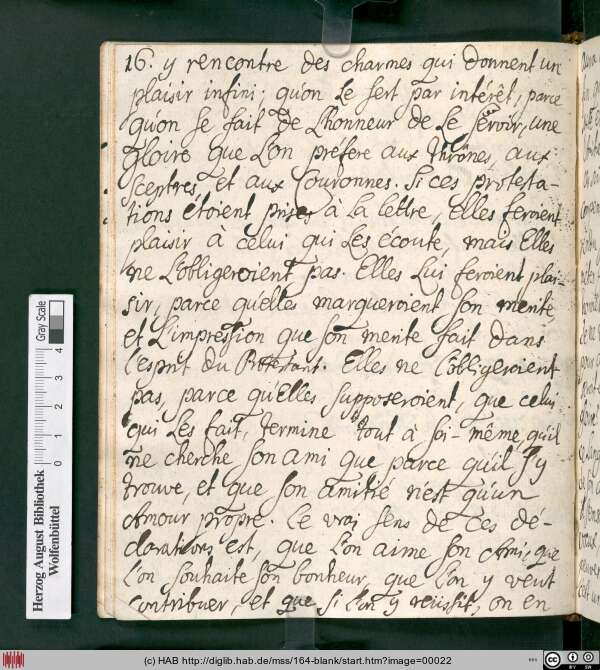 16. y rencontre des charmes qui donnent un
plaisir infini; qu'on Le sert par intérêt, parce
qu'on se fait de L'honneur de Le servir, une
gloire que L'on préfere aux thrônes, aux
sceptres, et aux Couronnes. Si ces protesta-
tions étoient prises à La Lettre, Elles feroient
plaisir à celui qui Les écoute, mais Elles
ne L'obligeroient pas. Elles Lui feroient plai-
sir, parce qu'elles marqueroient son merite,
et L'impression que son merite fait dans
l'esprit du Protestant. Elles ne L'obligeroient
pas, parce qu'Elles supposeroient, que celui
qui Les fait, termine tout à soi-même, qu'il
ne cherche son ami que parce qu'il s'y
trouve, et que son amitié n'est qu'un
Amour propre. Le vrai sens de ces dé-
clarations est, que L'on aime son Ami, que
L'on souhaite son bonheur, que L'on y veut
contribuer, et que si L'on y réüssit, on en
Herzog August Bibliothek
Wolfenbüttel
Gray Scale
0 1 2 3 4
(c) HAB http://diglib.hab.de/mss/164-blank/start.htm?image=00022